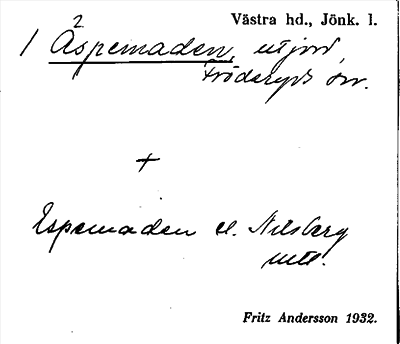 Västra hd., Jönk. l.
2
1 Äspemaden, utjord,
Fröderyds sn.
+
Espemaden el. Nilsberg
Fritz Andersson 1932.